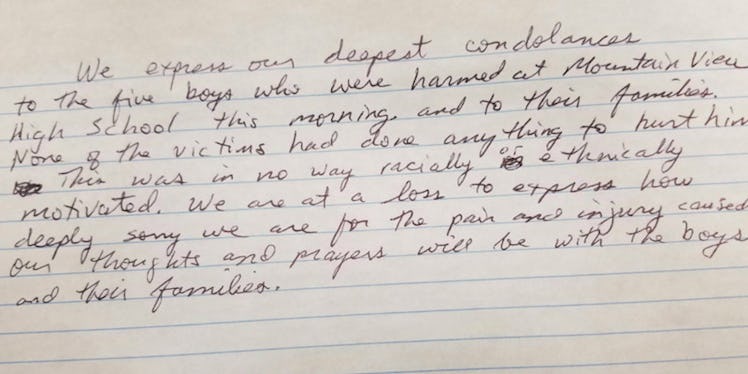 We express our deepest condolances
to the five boys who were harmed at Mountain View
High School this morning and to their families.
None of the victims had done anything to hurt him
This was in no way racially or ethnically
motivated. We are at a loss to express how
deeply sorry we are for the pain and injury caused
our thoughts and prayers will be with the boys
and their families.